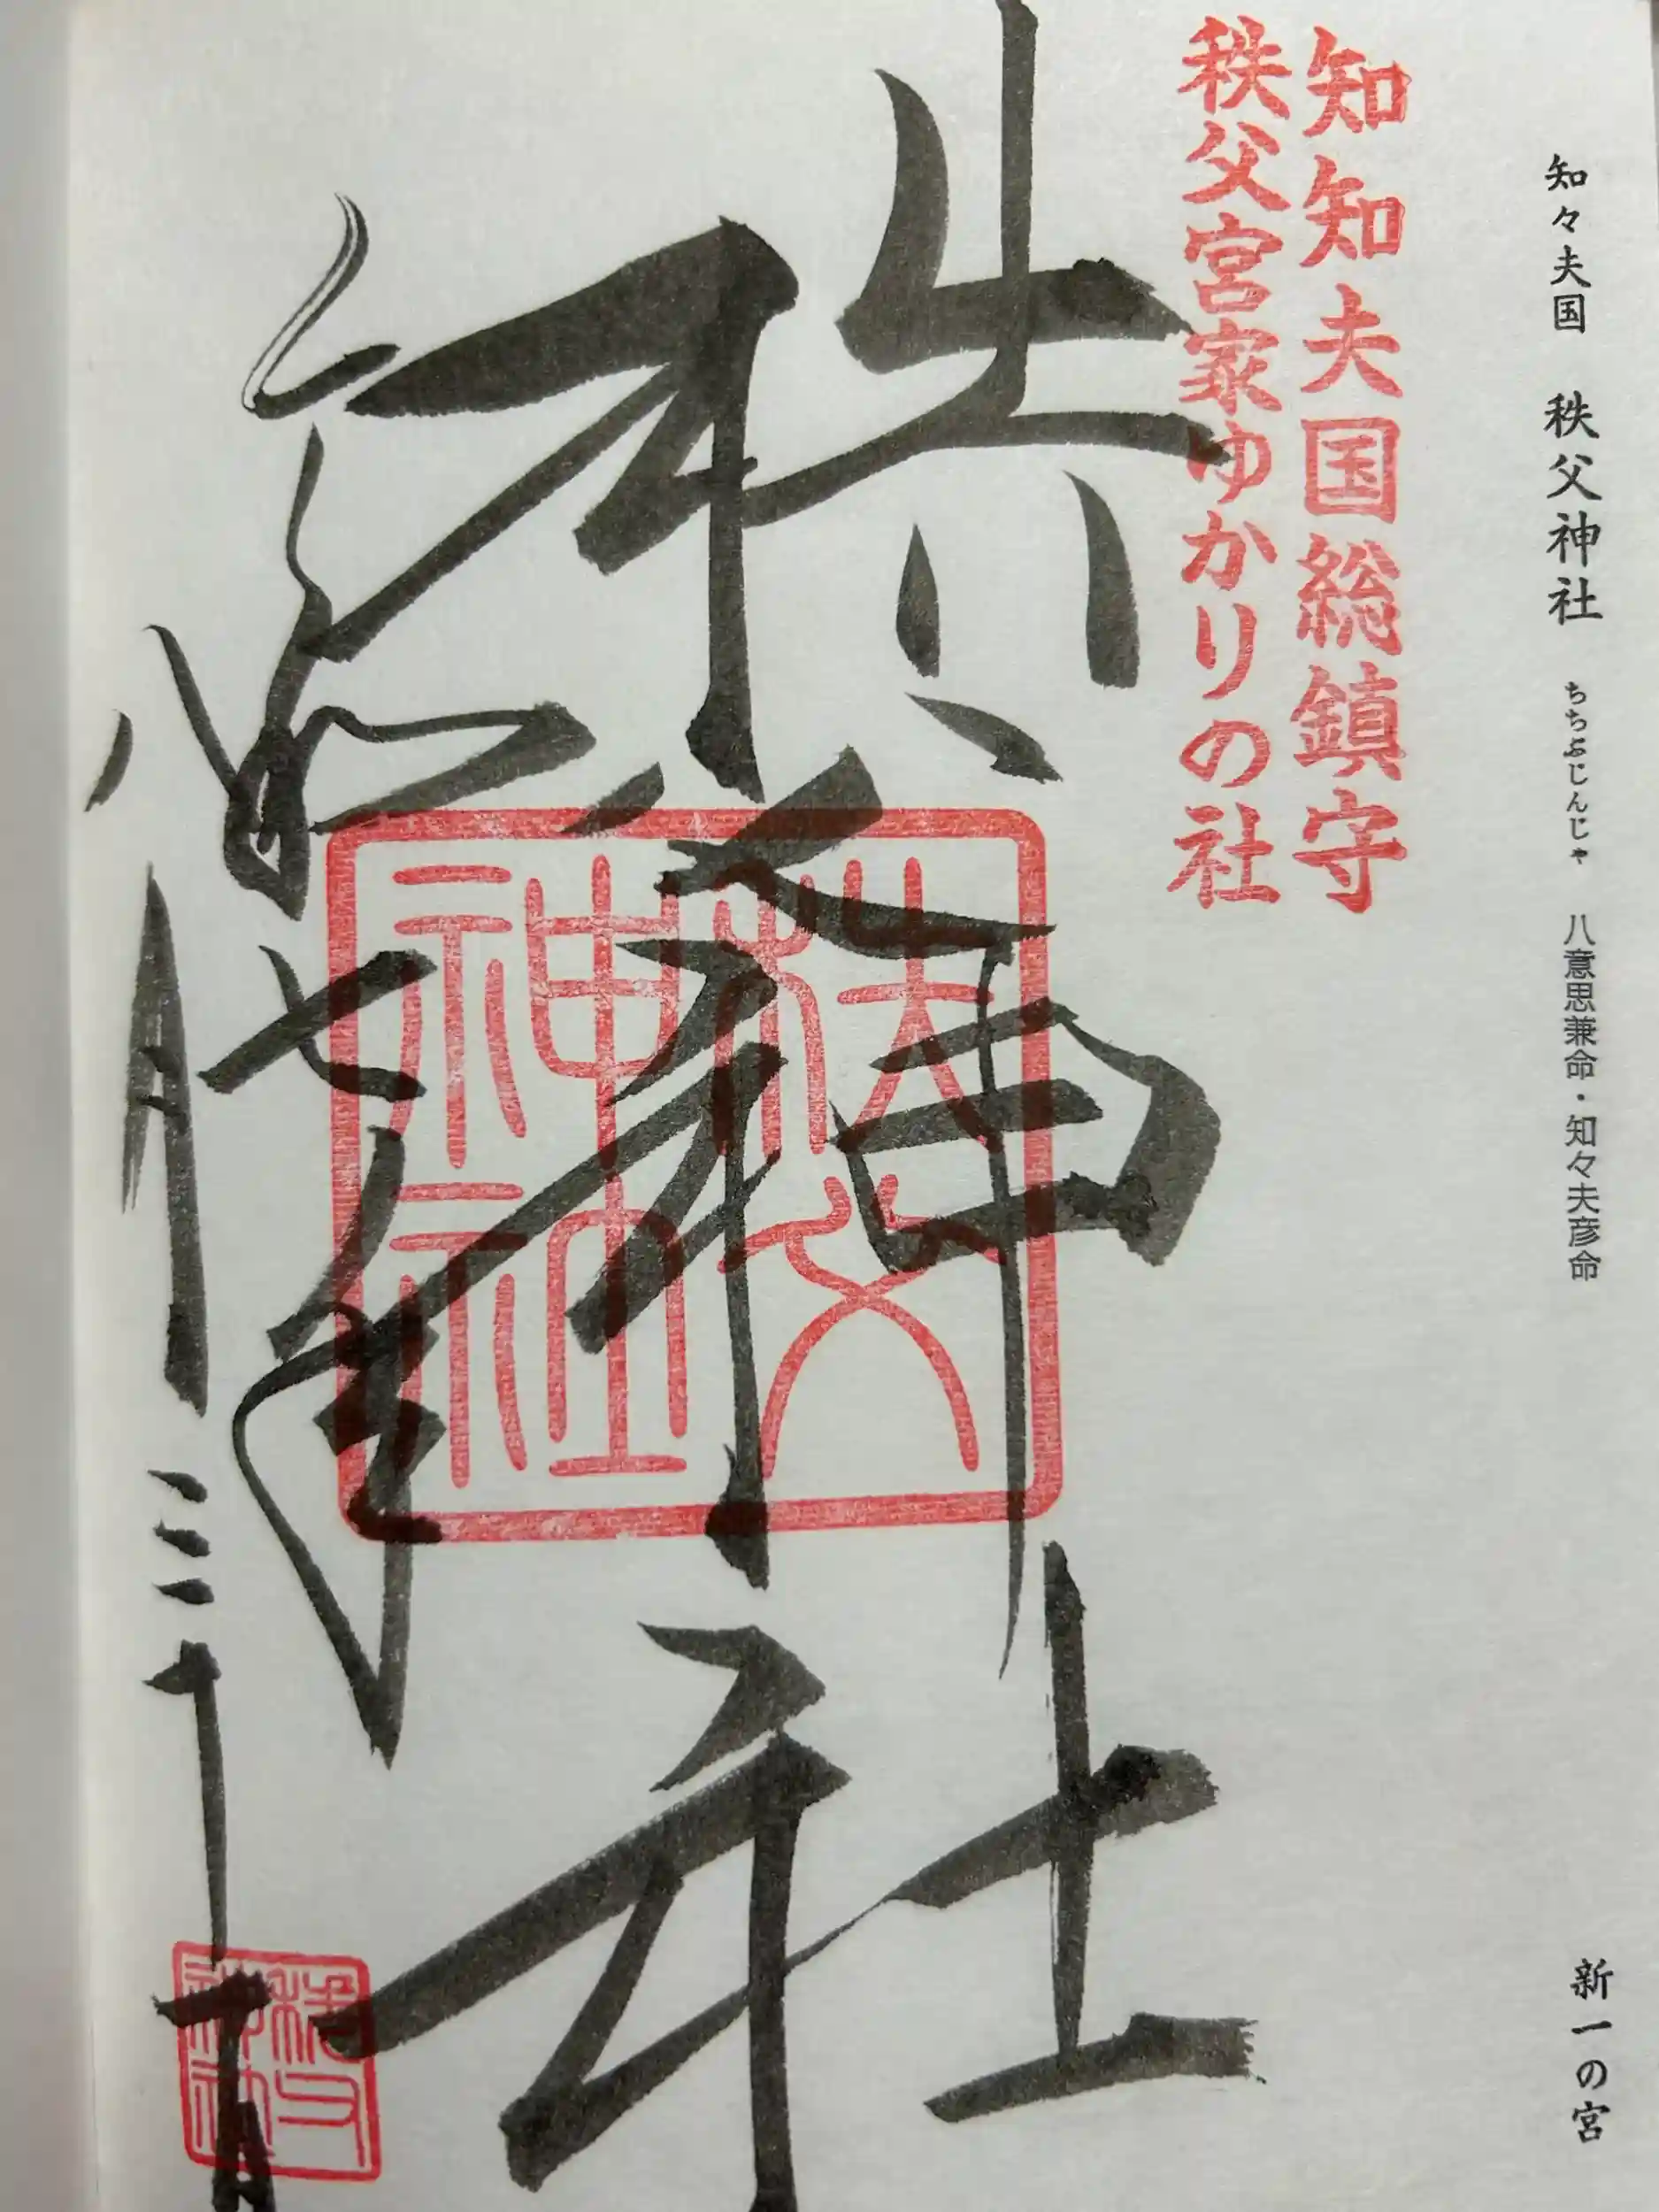 知々夫国 秩父神社 ちちぶじんじゃ 八意思兼命・知々夫彦命 新一の宮
知知夫国総鎮守
秩父宮家ゆかりの社
秩父神社
秩父神社
令和七年
八月三十一日
秩父神社